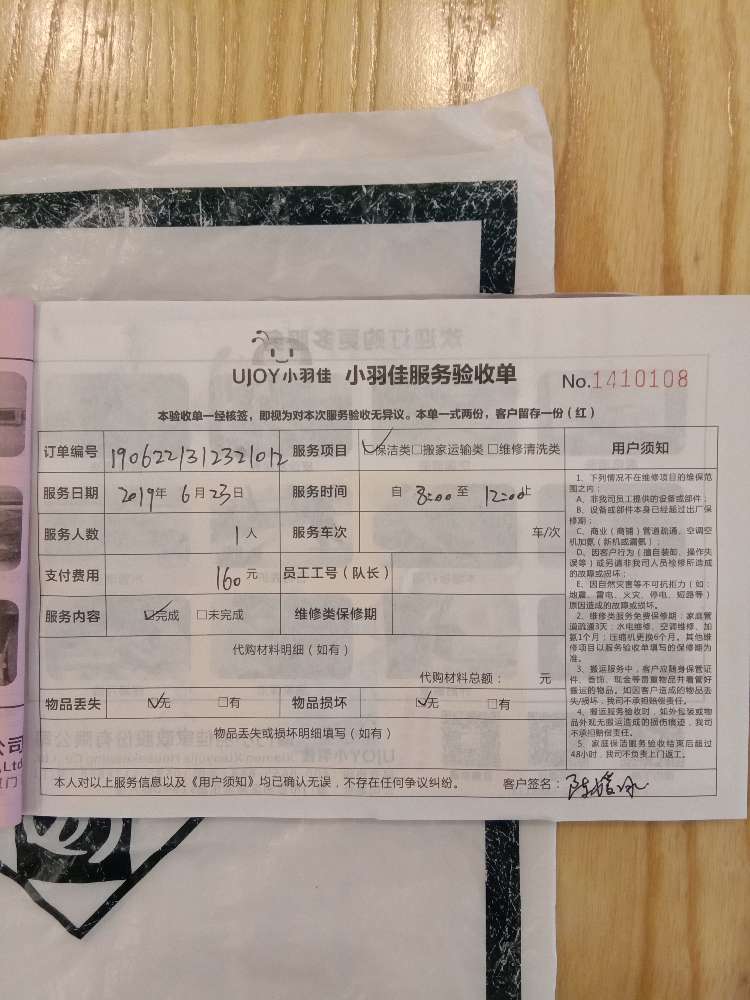 UJOY小羽佳 小羽佳服务验收单 No.1410108
本验收单一经核签，即视为对本次服务验收无异议。本单一式两份，客户留存一份（红）
订单编号 1906221312321012 服务项目 ☑保洁类□搬家运输类□维修清洗类 用户须知
服务日期 2019年6月23日 服务时间 自 8:00 至 12:00止
服务人数 1人 服务车次 车/次
支付费用 160元 员工工号（队长）
服务内容 ☑完成 □未完成 维修类保修期
代购材料明细（如有）
代购材料总额： 元
物品丢失 ☑无 □有 物品损坏 ☑无 □有
物品丢失或损坏明细填写（如有）
本人对以上服务信息以及《用户须知》均已确认无误，不存在任何争议纠纷。 客户签名：
1、下列情况不在维修项目的维保范
围之内：
A、非我司员工提供的设备或部件；
B、设备或部件本身已经超过出厂保
修期；
C、商业（商铺）管道疏通、空调空
机加氨（新机或漏氨）；
D、因客户行为（擅自装卸、操作失
误等）或另请非我司人员检修所造成
的故障或损坏；
E、因自然灾害等不可抗拒力（如：
地震、雷电、火灾、停电、短路等）
原因造成的故障或损坏。
2、维修类服务免费保修期：家庭管
道疏通3天；水电维修、空调维修、加
氨1个月；压缩机更换6个月。其他维
修项目以服务验收单填写的保修期为
准。
3、搬运服务中，客户应随身保管证
件、首饰、现金等贵重物品并看管好
搬运的物品。如因客户造成的物品丢
失/损坏，我司不承担赔偿责任。
4、搬运服务验收时，如外包装或物
品外观无搬运造成的损伤痕迹，我司
不承担赔偿责任。
5、家庭保洁服务验收结束后超过
48小时，我司不负责上门返工。
公司
,Ltd